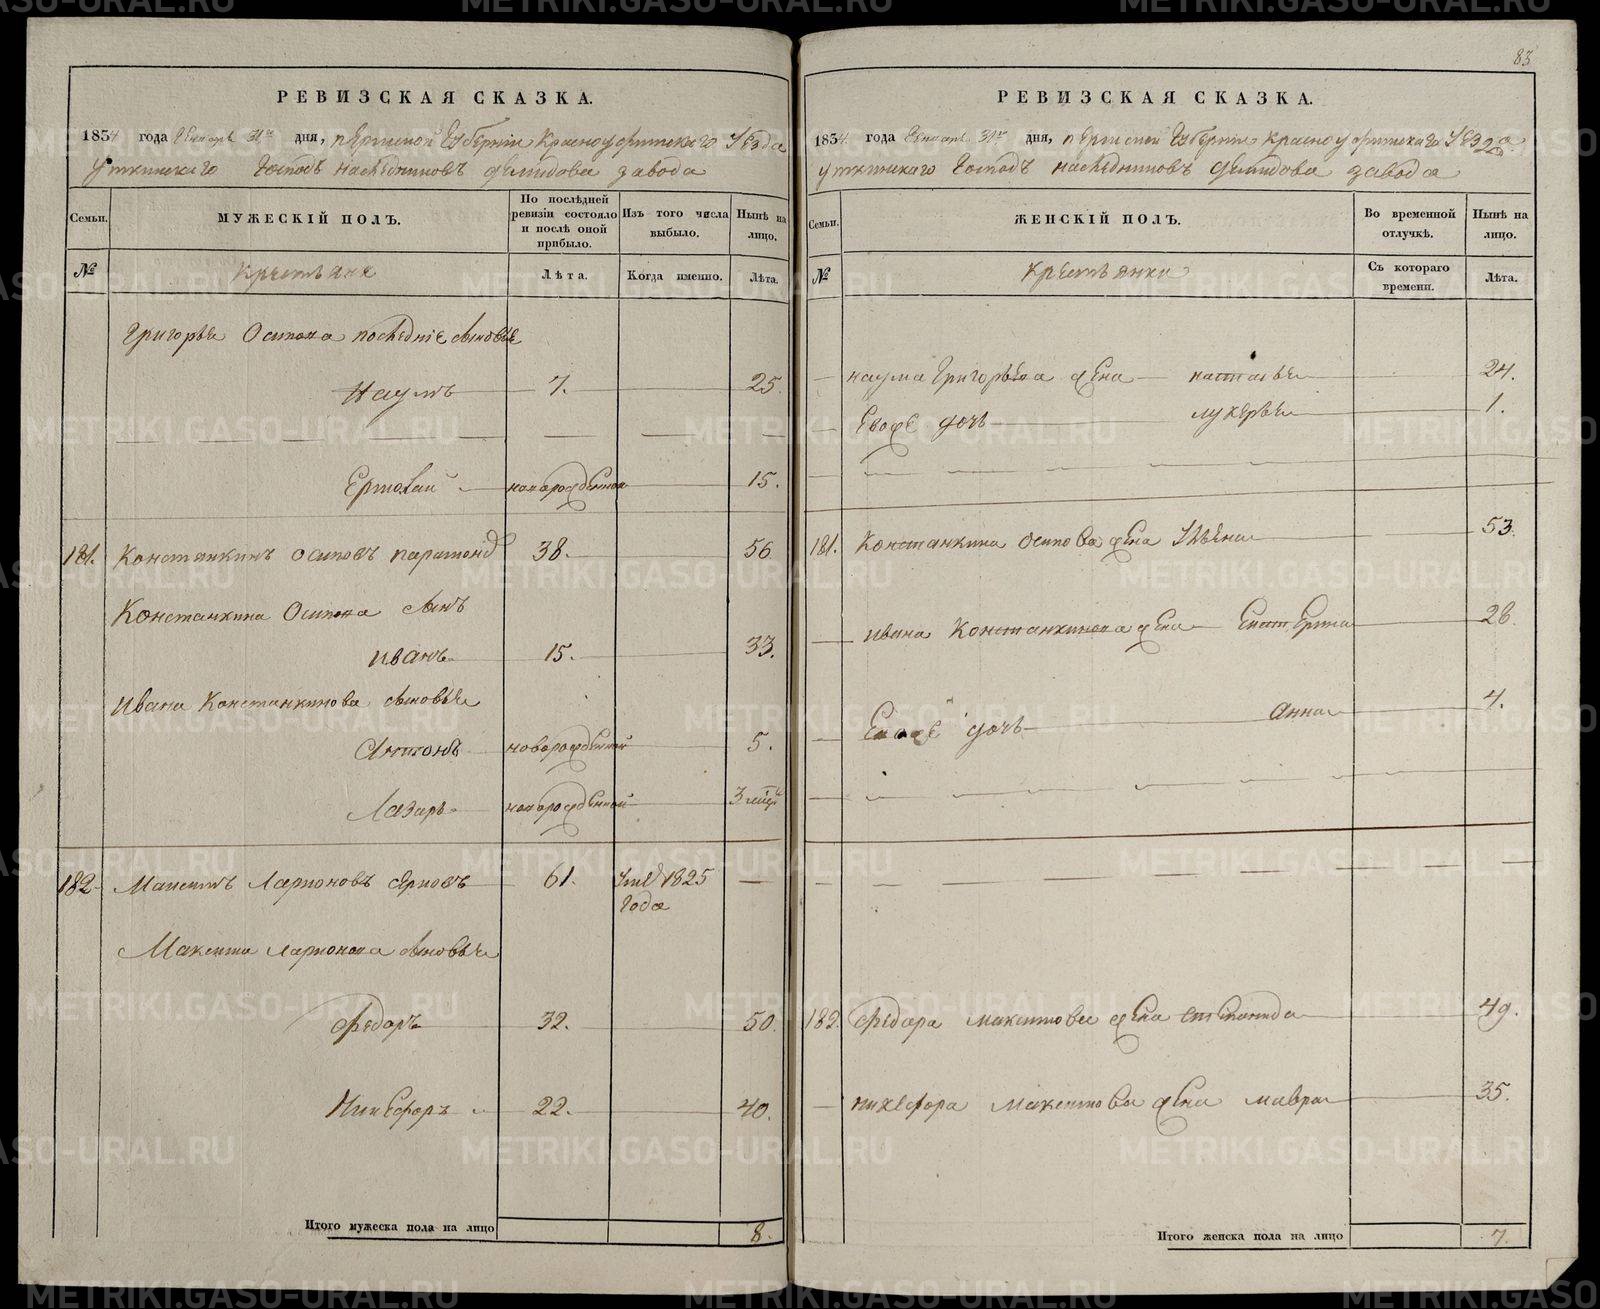 83
РЕВИЗСКАЯ СКАЗКА.
1834 года Генваря 31го дня, пермской Губернiи Красноуфимскаго Уезда
Уткинскаго Господъ наследниковъ демидова завода
Семьи. МУЖЕСКIЙ ПОЛЪ. По послѣдней ревизiи состояло и послѣ оной прибыло. Изъ того числа выбыло. Нынѣ на лицо.
№ Крестьяне Лѣта. Когда именно. Лѣта.
Григорья Осипова последнiе сыновья
Наумъ 7. 25
Ермолай новорожденной 15.
181. Констанкинъ осиповъ 38. 56
Констанкина Осипова сынъ
иванъ 15. 33.
Ивана Констанкинова сыновья
Антонъ новорожденной 5.
Лазарь новорожденной 3
182 Максимъ Ларионовъ 61. 1825
года
Максима Ларионова сыновья
Федоръ 32. 50.
Никефоръ 22. 40.
Итого мужеска пола на лицо 8.
РЕВИЗСКАЯ СКАЗКА.
1834. года Генваря 31го дня, пермской Губернiи красноуфимскаго Уезда
уткинскаго Господъ наследниковъ демидова завода
Семьи. ЖЕНСКIЙ ПОЛЪ. Во временной отлучкѣ. Нынѣ на лицо.
№ Крестьянки Съ котораго времени. Лѣта.
наума Григорьева жена настасья 24.
Евоже дочь лукерья 1.
181. Констанкина осипова жена Ульяна 53.
ивана Констанкинова жена Екатерина 28.
Евоже дочь анна 4.
182. Федора максимова жена степанида 49.
никефора максимова жена мавра 35.
Итого женска пола на лицо 7.
METRIKI.GASO-URAL.RU